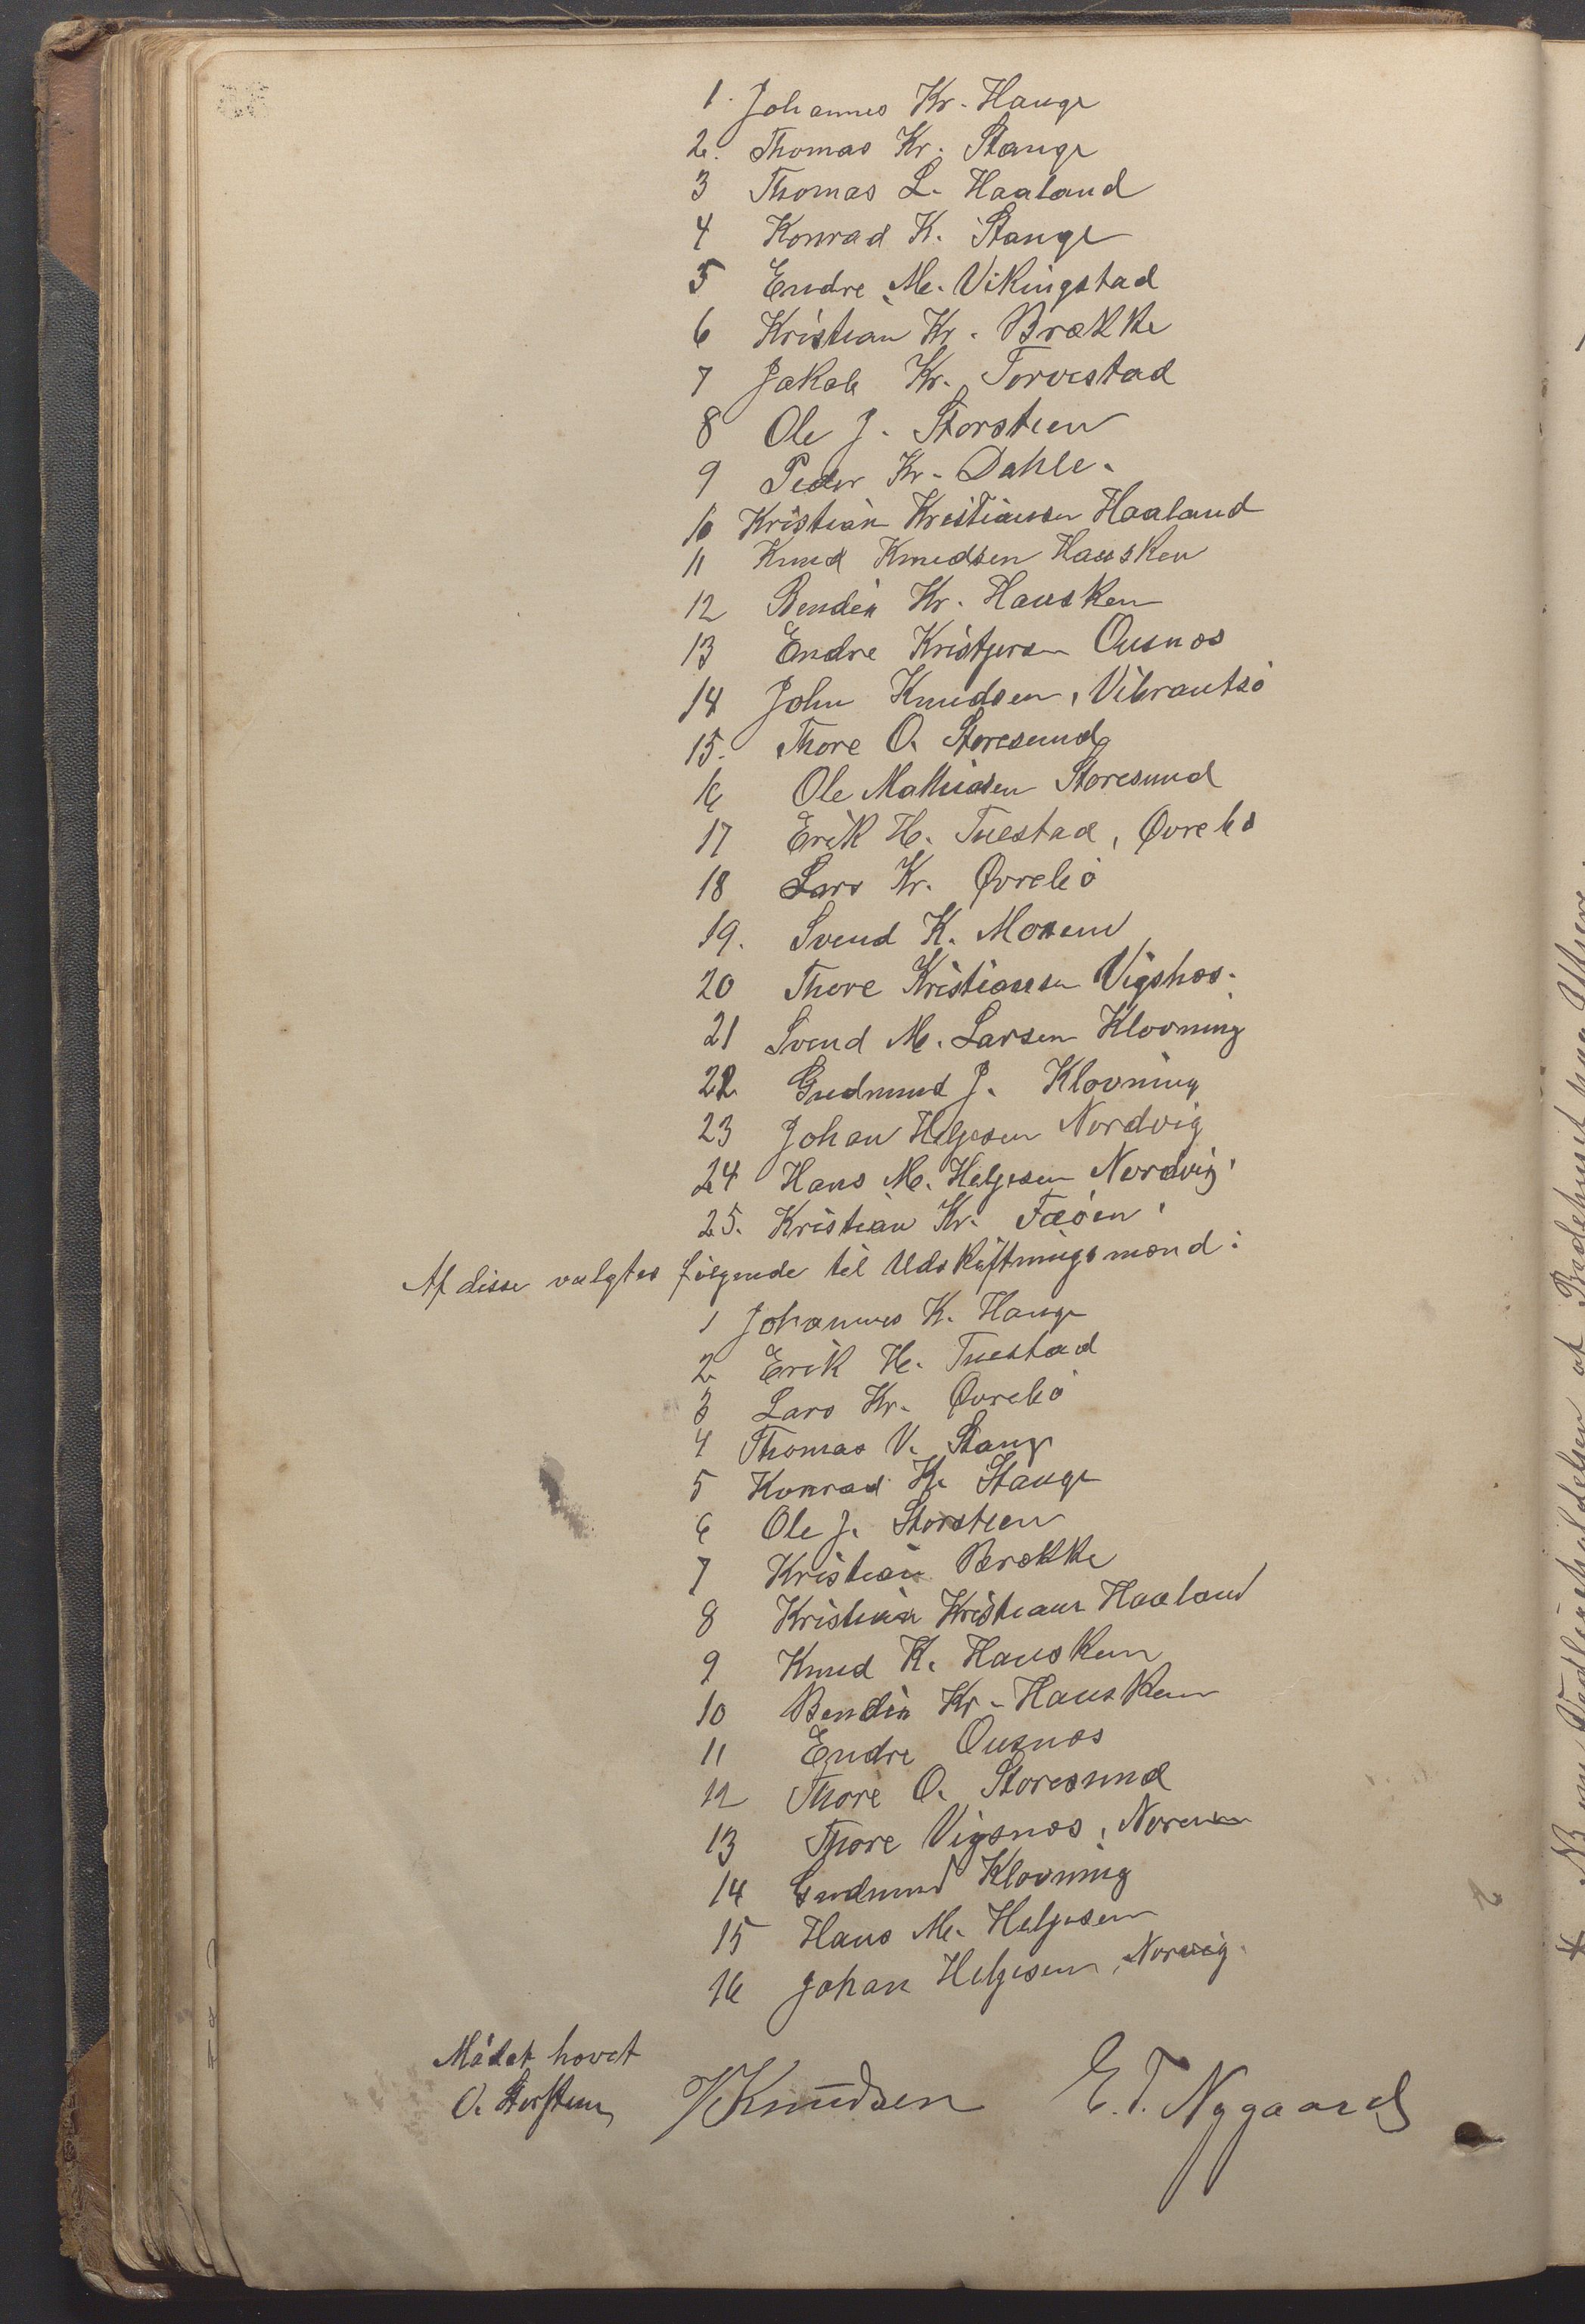 1. Johannes Kr. Hauge
2. Thomas Kr. Stange
3 Thomas L. Haaland
4 Konrad K. Stange
5 Endre M. Vikingstad
6 Kristian Kr. Brække
7 Jakob Kr. Torvestad
8 Ole J. Storsteen
9 Peder Kr. Dahle.
10 Kristian Kristiansen Haaland
11 Knud Knudsen Hausken
12 Bendix Kr. Hausken
13 Endre Kristjersen Ousnæs
14 John Knudsen, Vibrantsö
15. Thore O. Storesund
16 Ole Mathiasen Storesund
17 Erik H. Tuestad, Øvrebö
18 Lars Kr. Øvrebö
19. Svend K. Moxem
20 Thore Kristiansen Vigsnæs.
21 Svend M. Larsen Klovning
22 Gudmund J. Klovning
23 Johan Helgesen Nordvig
24 Hans M. Helgesen Nordvig
25. Kristian Kr. Fæöen
Af disse valgtes følgende til Udskiftningsmænd:
1 Johannes K. Hauge
2 Erik H. Tuestad
3 Lars Kr. Øvrebö
4 Thomas V. Stange
5 Konrad K. Stange
6 Ole J. Storsteen
7 Kristian Brække
8 Kristian Kristians Haaland
9 Knud K. Hausken
10 Bendix Kr. Hausken
11 Endre Ousnæs
12 Thore O. Storesund
13 Thore Vigsnæs,
14 Gudmund Klovning
15 Hans M. Helgesen
16 Johan Helgesen, Norvig.
Mödet hævet
O. Storsteen V Knudsen E. T. Nygaard